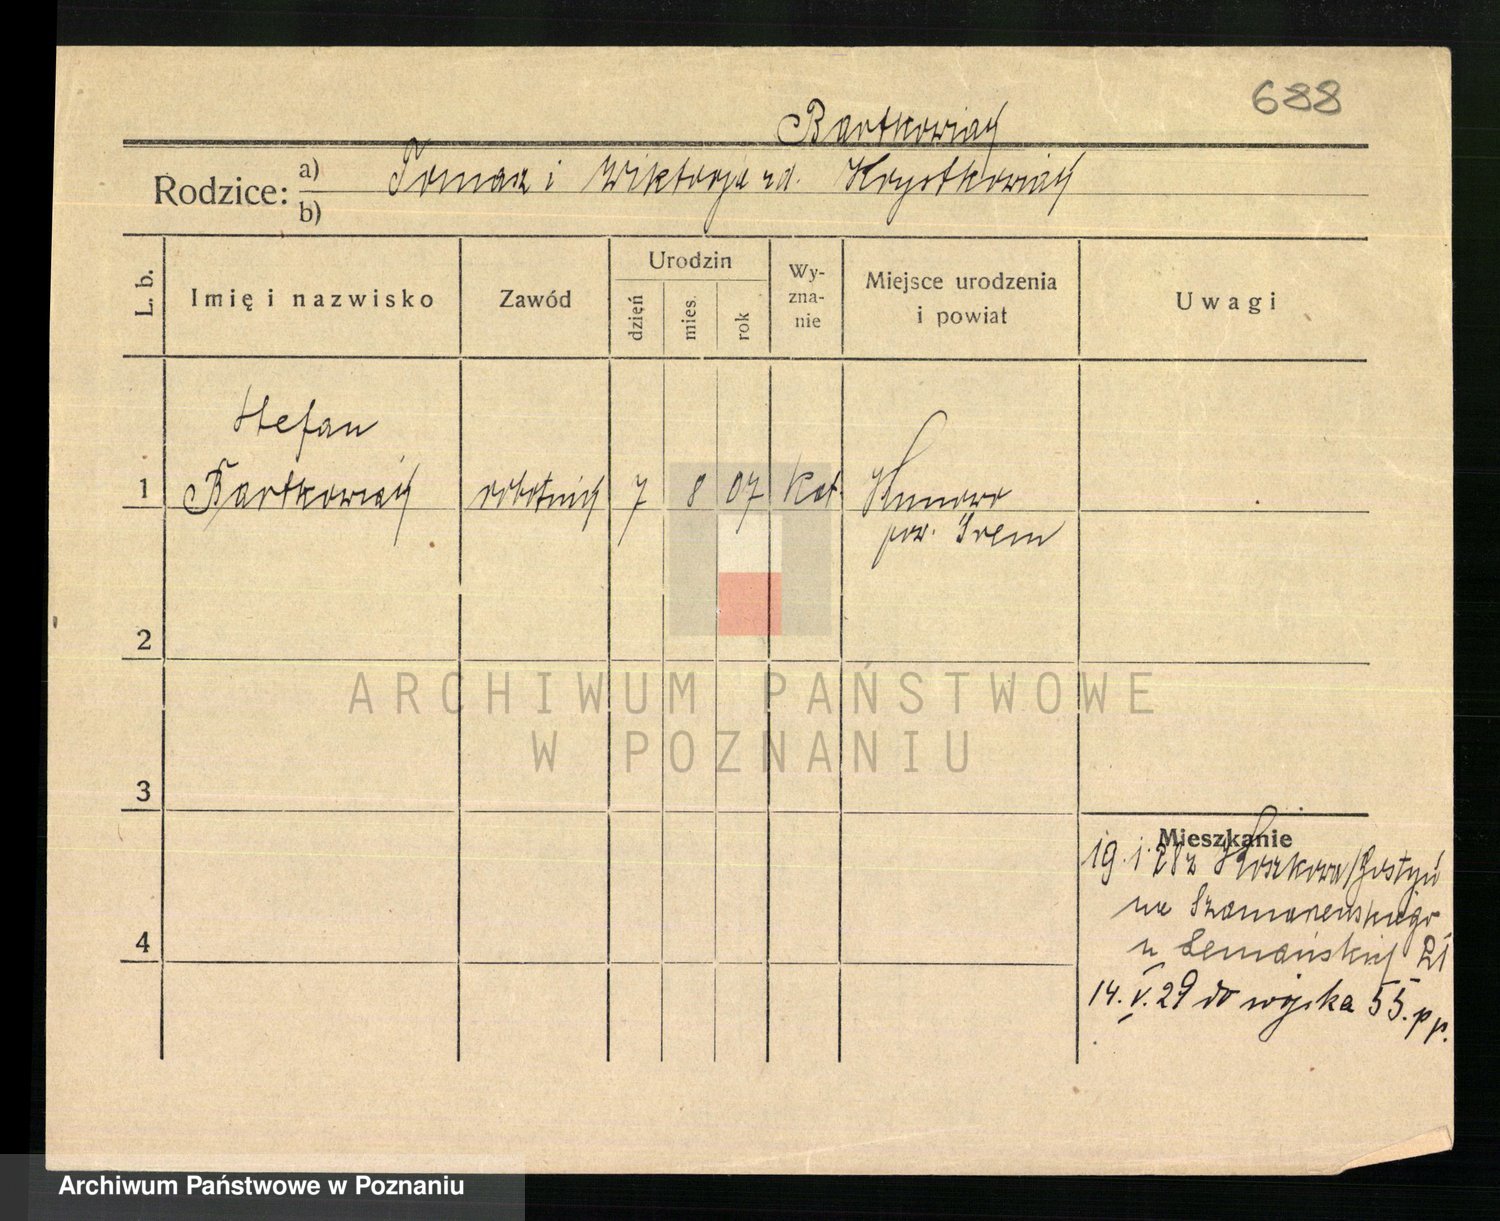 688
Bartkowiak
Rodzice: a) Tomasz i Wiktorja zd. Krystkowiak
b)
L. b. Imię i nazwisko Zawód Urodzin dzień mies. rok Wy-zna-nie Miejsce urodzenia i powiat Uwagi
Stefan
1 Bartkowiak robotnik 7 8 07 Kat.
pow. Śrem
2
3
4
Mieszkanie
19. i. 28 z /Gostyń
na
u 21
14. V. 29 do wojska 55. p p.
ARCHIWUM PAŃSTWOWE
W POZNANIU
Archiwum Państwowe w Poznaniu